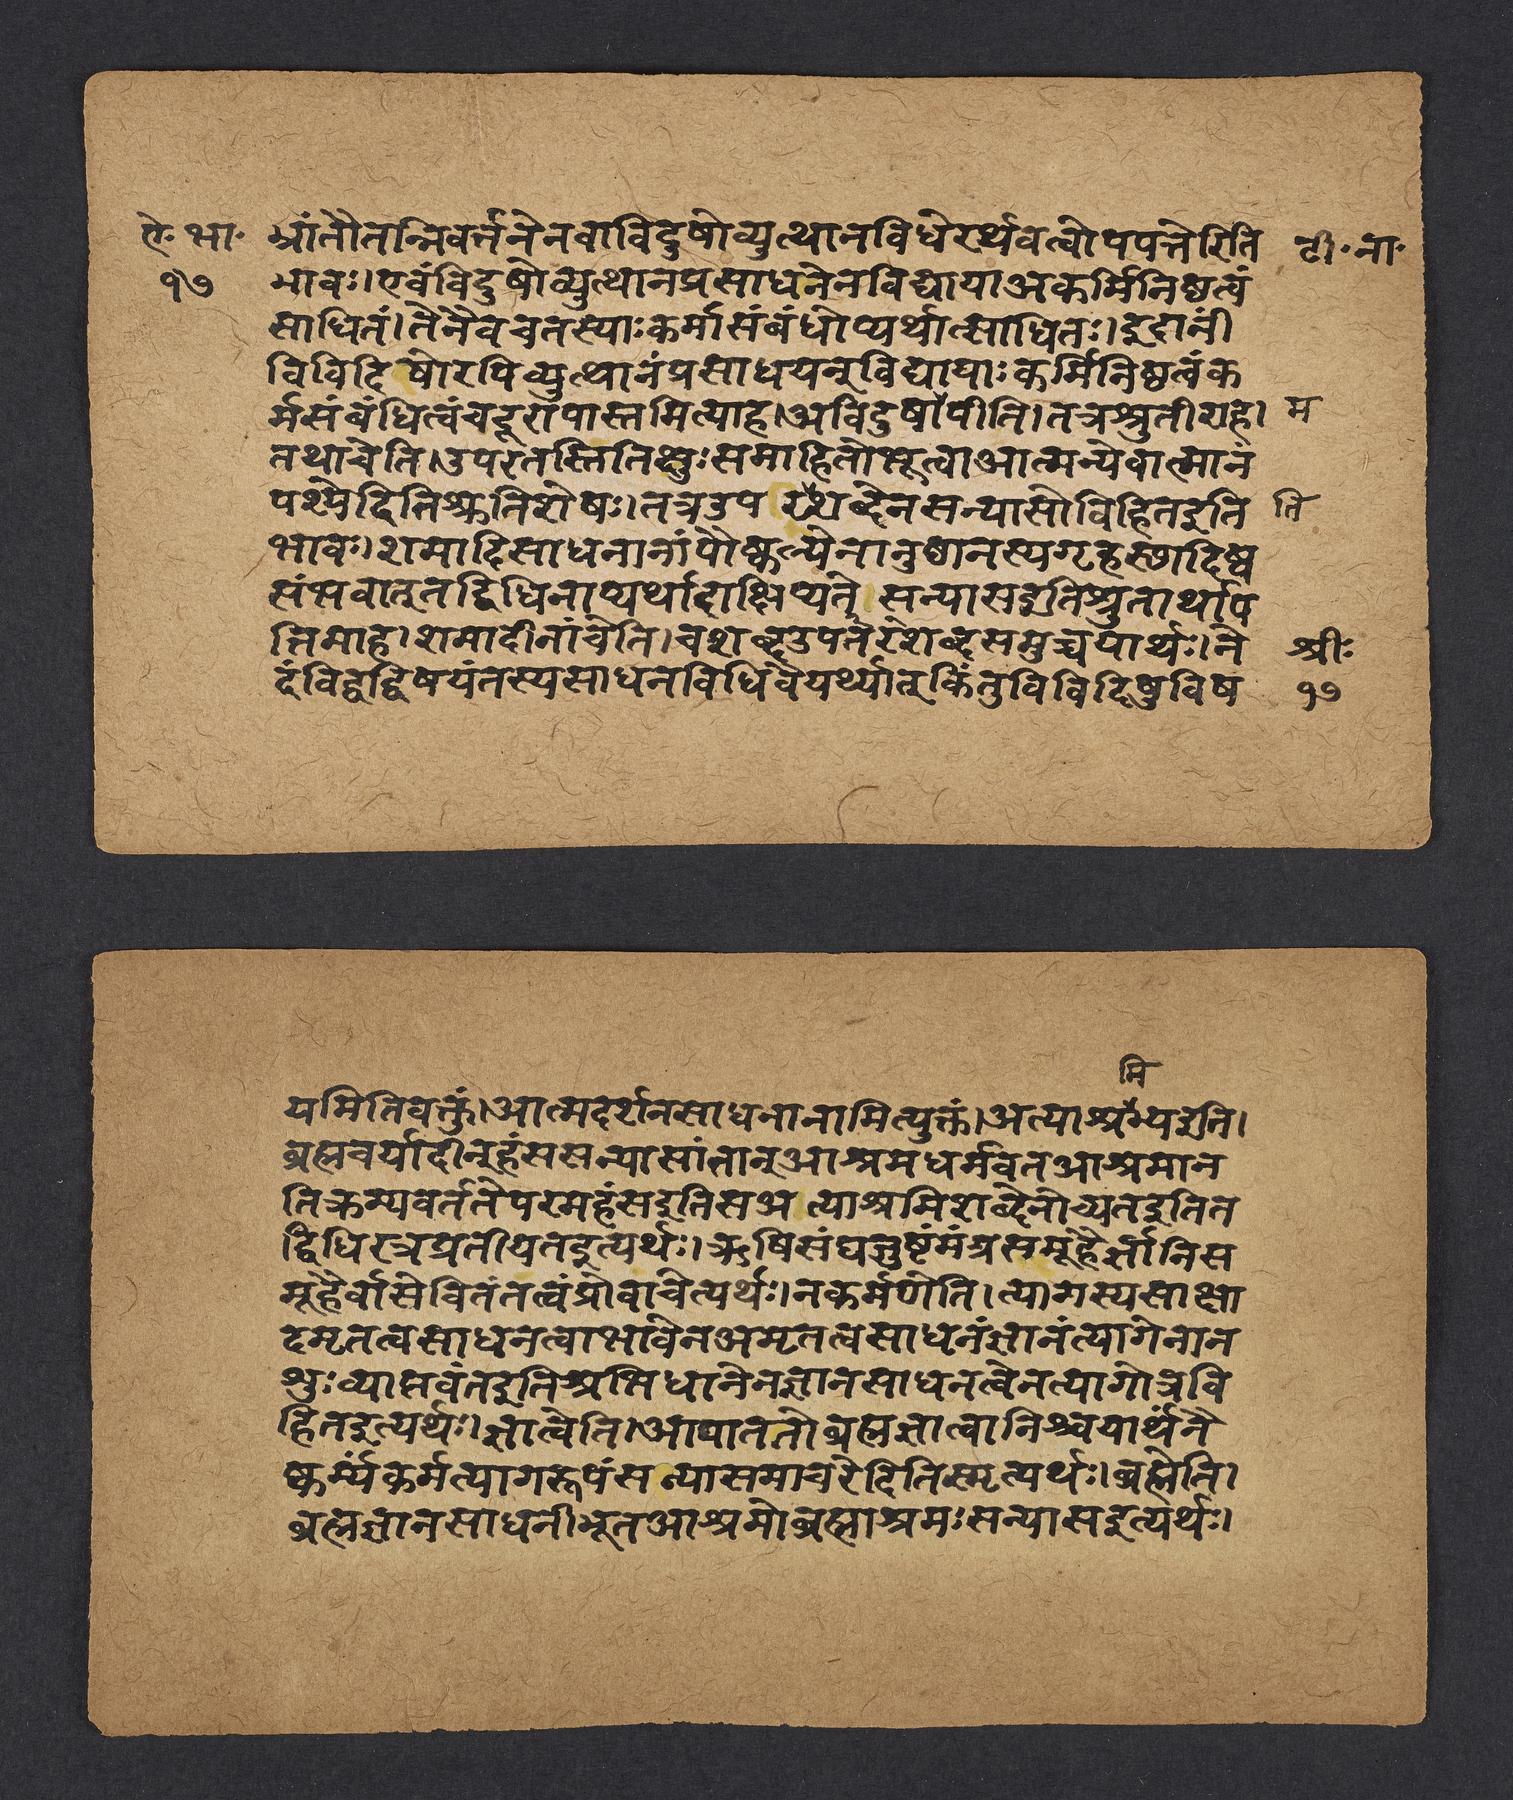 ऐ॰ भा॰
१७
भ्रांतौतन्निवर्त्तनेनवाविदुषोव्युत्थानविधेरर्थवत्वोपपत्तेरिति
टी॰ ना॰
भावः।एवंविदुषोव्युत्थानप्रसाधनेनविद्यायाअकर्मिनिष्ठत्वं
साधितं।तेनैवचतस्याःकर्मासंबंधोप्यर्थात्साधितः।इदानीं
विविदिषोरपिव्युत्थानंप्रसाधयन्विद्यायाःकर्मिनिष्ठत्वंक
र्मसंबंधित्वंचदूरापास्तमित्याह।अविदुषापीति।तत्रश्रुतीराह।
म
तथाचेति।उपरतस्तितिक्षुःसमाहितोभूत्वाआत्मन्येवात्मानं
पश्येदितिश्रुतिशेषः।तत्रउपरशब्देनसन्यासोविहितइति
ति
भावः।शमादिसाधनानांपौष्कल्येनानुष्ठानस्यगृहस्थादिष्व
संभवात्तद्विधिनाप्यर्थादाक्षिप्यतेसन्यासइतिश्रुतार्थाप
त्तिमाह।शमादीनांचेति।चशब्दउपतरशब्दसमुच्चयार्थः।ने
श्रीः
दंविद्वद्विषयंतस्यसाधनविधिवैयर्थ्यात्किंतुविविदिषुविष
१७
मि
यमितिवक्तुं।आत्मदर्शनसाधनानामित्युक्तं।अत्याश्रम्यइति।
ब्रह्मचर्यादीन्हंससन्यासांतान्आश्रमधर्मवतआश्रमान
तिक्रम्यवर्ततेपरमहंसइतिसअत्याश्रमिशब्देनोच्यतइतित
द्विधिरत्रप्रतीयतइत्यर्थः।ऋषिसंघजुष्टंमंत्रसमूहैर्ज्ञानिस
मूहैर्वासेवितंतत्वंप्रोवाचेत्यर्थः।नकर्मणेति।त्यागस्यसाक्षा
दमृतत्वसाधनत्वाभावेनअमृतत्वसाधनंज्ञानंत्यागेनान
शुःव्याप्तवंतइतिअभिधानेनज्ञानसाधनत्वेनत्यागोत्रवि
हितइत्यर्थः।ज्ञात्वेति।आपाततोब्रह्मज्ञात्वानिश्चयार्थंनै
ष्कर्म्यंकर्मत्यागरूपंसन्यासमाचरेदितिस्मृत्यर्थः।ब्रह्मेति।
ब्रह्मज्ञानसाधनीभूतआश्रमोब्रह्माश्रमःसन्यासइत्यर्थः।